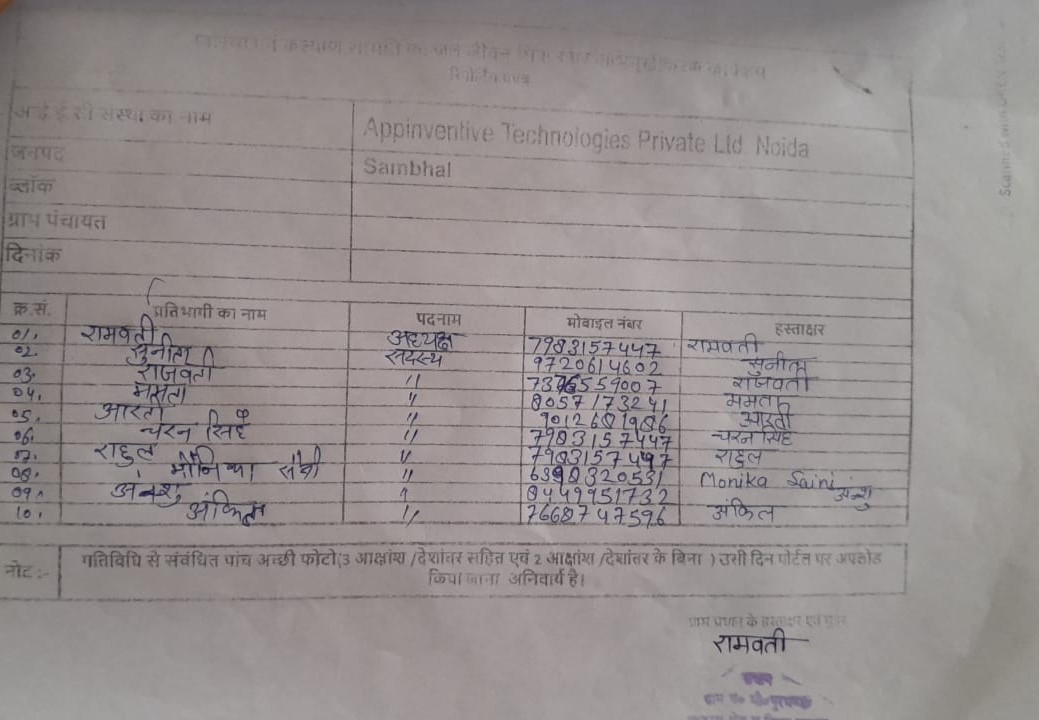 रिपोर्टिंग प्रपत्र
आई ई सी संस्था का नाम Appinventive Technologies Private Ltd. Noida
जनपद Sambhal
ब्लॉक
ग्राम पंचायत
दिनांक
क्र.सं. प्रतिभागी का नाम पदनाम मोबाइल नंबर हस्ताक्षर
01. रामवती अध्यक्ष 7983157447 रामवती
02. सुनीता सदस्य 9720614602 सुनीता
03. राजवती " राजवती
04. ममता " 8057173241 ममता
05. आरती " आरती
06. चरन सिंह " 7983157447 चरन सिंह
07. राहुल " राहुल
08. मोनिका सैनी " 6398320531 Monika Saini
09. अन्शु " 8449951732 अन्शु
10. अंकित " 7668747596 अंकित
नोट :- गतिविधि से संबंधित पांच अच्छी फोटो(3 आक्षांश /देशांतर सहित एवं 2 आक्षांश /देशांतर के बिना ) उसी दिन पोर्टल पर अपलोड
किया जाना अनिवार्य है।
ग्राम प्रधान के हस्ताक्षर एवं मुहर
रामवती